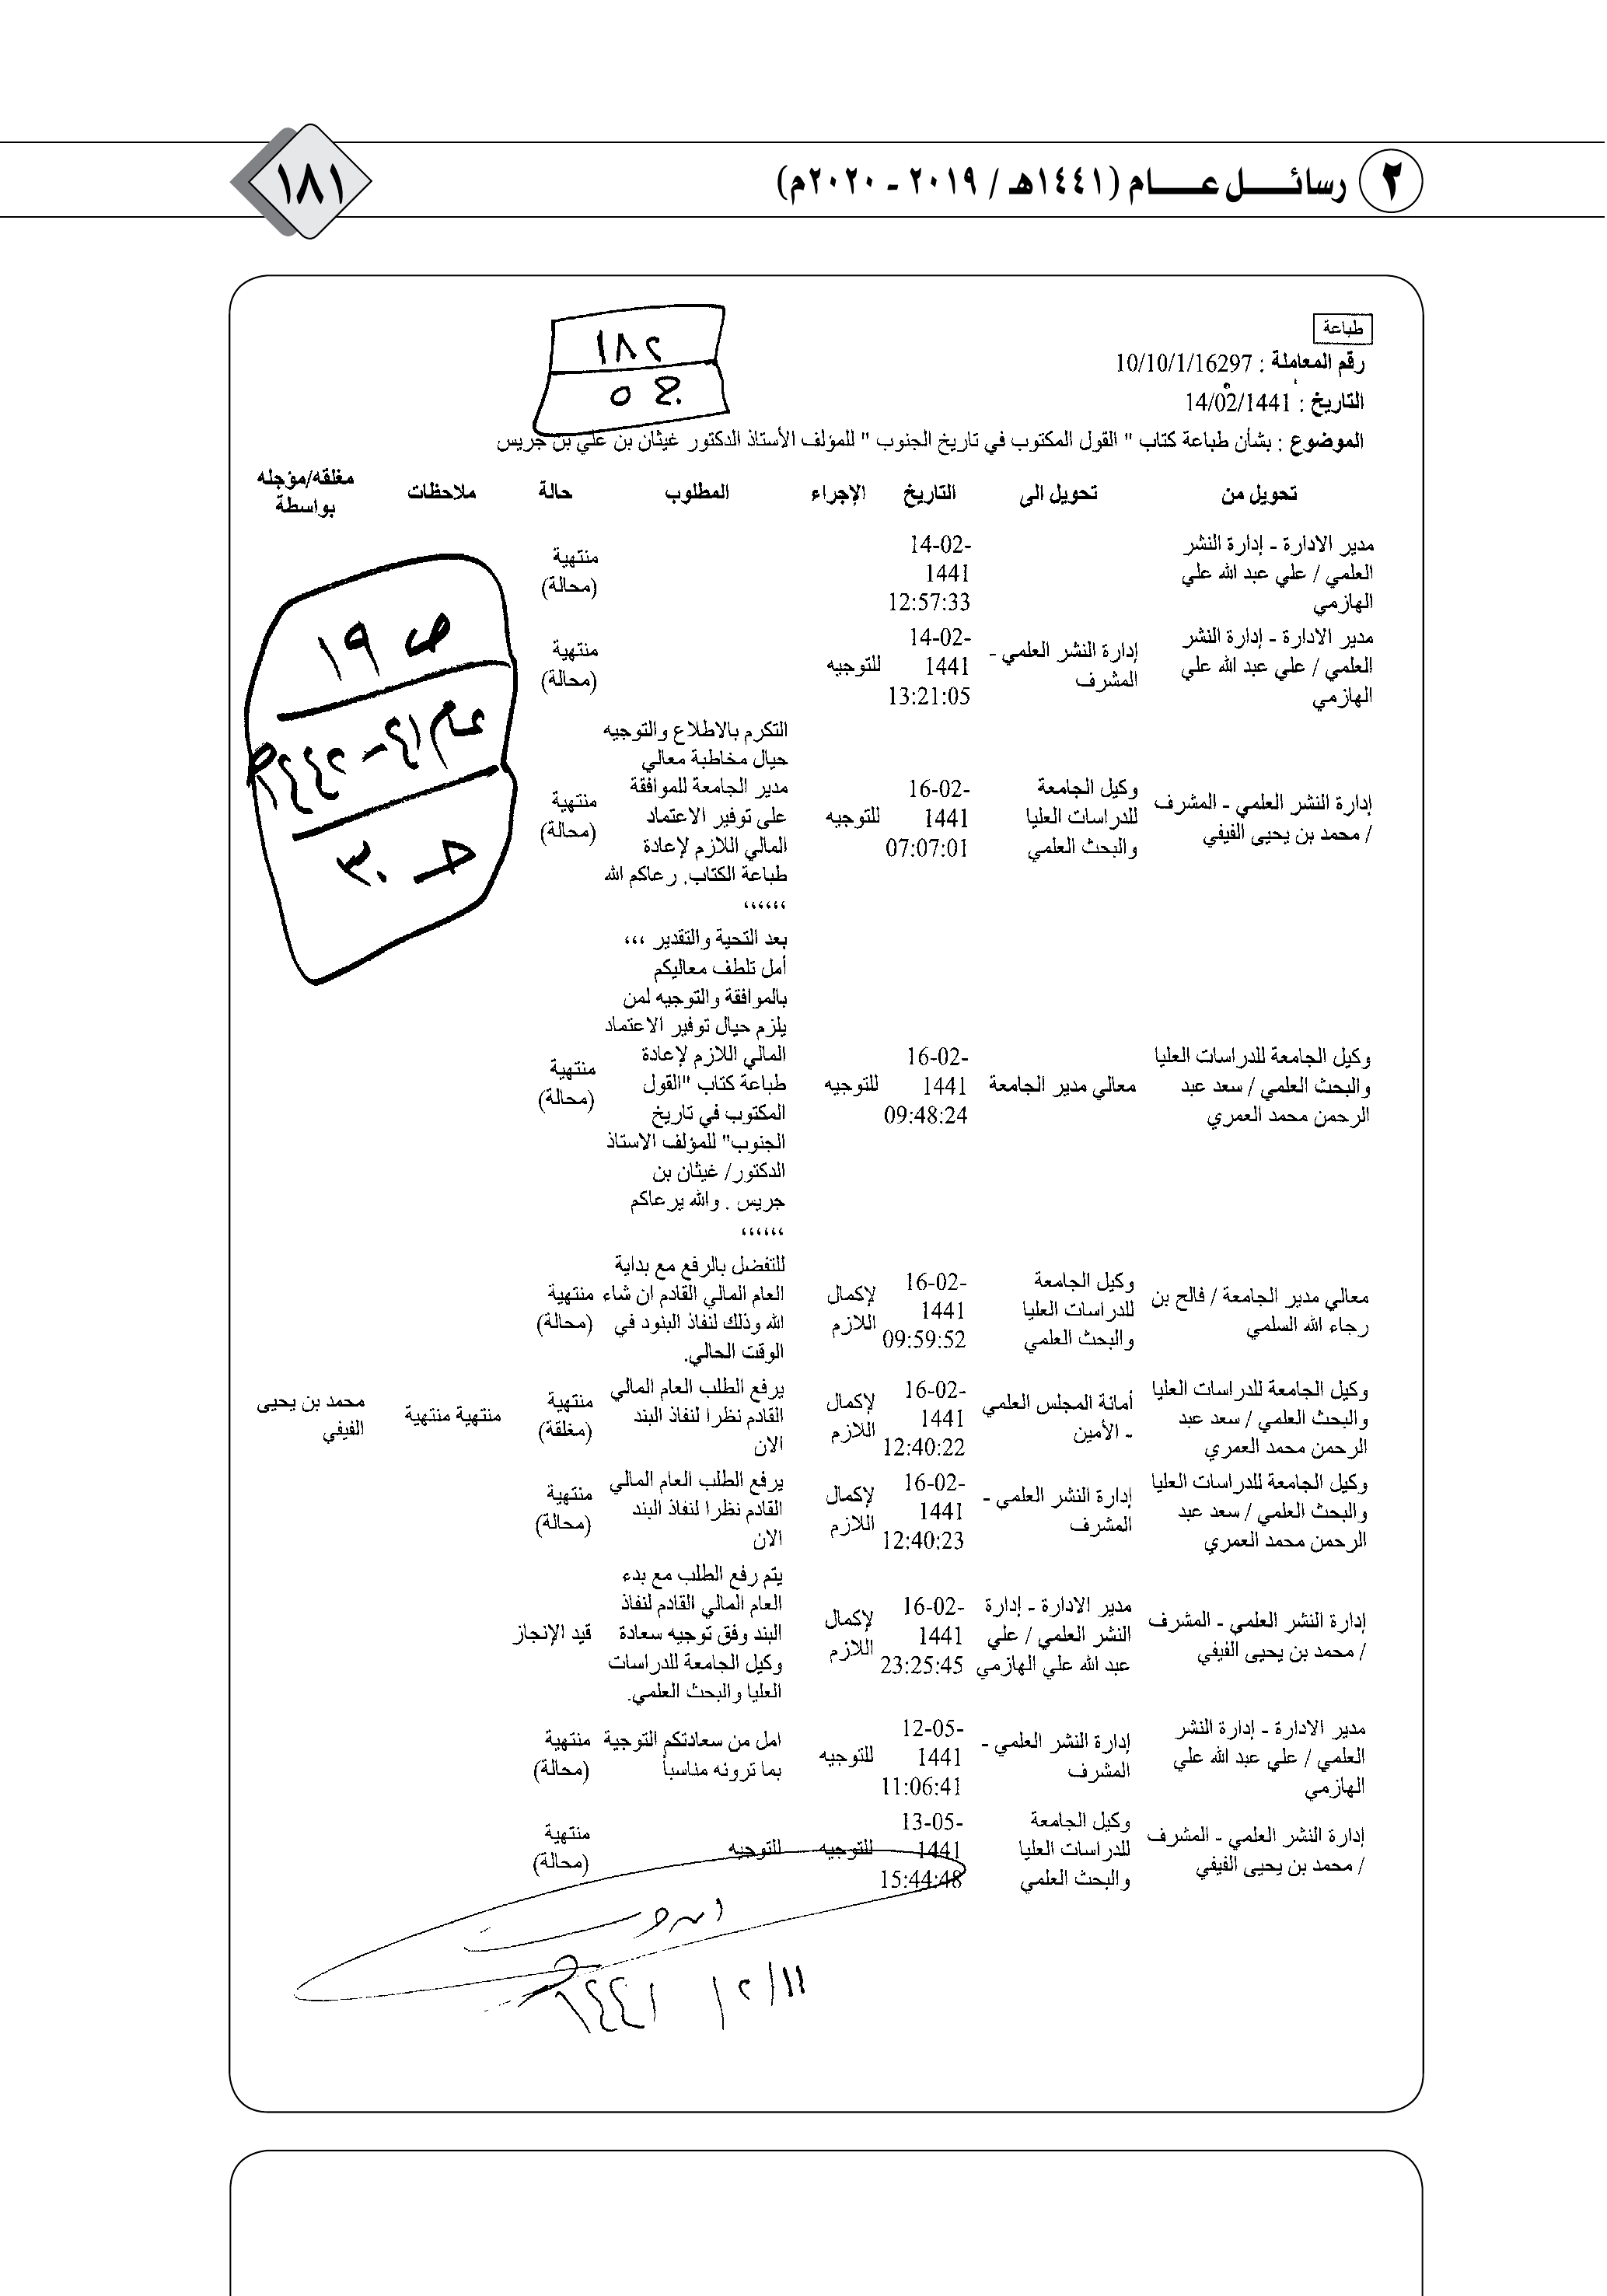 ٢ رسائل عام (١٤٤١هـ / ٢٠١٩ - ٢٠٢٠م)
١٨١
طباعة
١٨٢
رقم المعاملة : 10/10/1/16297
التاريخ : 14/02/1441
الموضوع : بشأن طباعة كتاب " القول المكتوب في تاريخ الجنوب " للمؤلف الأستاذ الدكتور غيثان بن علي بن جريس
تحويل من تحويل الى التاريخ الإجراء المطلوب حالة ملاحظات مغلقه/مؤجله بواسطة
مدير الادارة - إدارة النشر
العلمي / علي عبد الله علي
الهازمي
14-02-
1441
12:57:33
منتهية
(محالة)
مدير الادارة - إدارة النشر
العلمي / علي عبد الله علي
الهازمي
إدارة النشر العلمي -
المشرف
14-02-
1441
13:21:05
للتوجيه
منتهية
(محالة)
إدارة النشر العلمي - المشرف
/ محمد بن يحيى الفيفي
وكيل الجامعة
للدراسات العليا
والبحث العلمي
16-02-
1441
07:07:01
للتوجيه
التكرم بالاطلاع والتوجيه
حيال مخاطبة معالي
مدير الجامعة للموافقة
على توفير الاعتماد
المالي اللازم لإعادة
طباعة الكتاب. رعاكم الله
،،،،،،
منتهية
(محالة)
ص ١٩
عام ٤١ - ١٤٤٢هـ
جـ ٣٠
وكيل الجامعة للدراسات العليا
والبحث العلمي / سعد عبد
الرحمن محمد العمري
معالي مدير الجامعة
16-02-
1441
09:48:24
للتوجيه
بعد التحية والتقدير ،،،
أمل تلطف معاليكم
بالموافقة والتوجيه لمن
يلزم حيال توفير الاعتماد
المالي اللازم لإعادة
طباعة كتاب "القول
المكتوب في تاريخ
الجنوب" للمؤلف الاستاذ
الدكتور/ غيثان بن
جريس . والله يرعاكم
،،،،،،
منتهية
(محالة)
معالي مدير الجامعة / فالح بن
رجاء الله السلمي
وكيل الجامعة
للدراسات العليا
والبحث العلمي
16-02-
1441
09:59:52
لإكمال
اللازم
للتفضل بالرفع مع بداية
العام المالي القادم ان شاء
الله وذلك لنفاذ البنود في
الوقت الحالي.
منتهية
(محالة)
وكيل الجامعة للدراسات العليا
والبحث العلمي / سعد عبد
الرحمن محمد العمري
أمانة المجلس العلمي
- الأمين
16-02-
1441
12:40:22
لإكمال
اللازم
يرفع الطلب العام المالي
القادم نظرا لنفاذ البند
الان
منتهية
(مغلقة)
منتهية منتهية
محمد بن يحيى
الفيفي
وكيل الجامعة للدراسات العليا
والبحث العلمي / سعد عبد
الرحمن محمد العمري
إدارة النشر العلمي -
المشرف
16-02-
1441
12:40:23
لإكمال
اللازم
يرفع الطلب العام المالي
القادم نظرا لنفاذ البند
الان
منتهية
(محالة)
إدارة النشر العلمي - المشرف
/ محمد بن يحيى الفيفي
مدير الادارة - إدارة
النشر العلمي / علي
عبد الله علي الهازمي
16-02-
1441
23:25:45
لإكمال
اللازم
يتم رفع الطلب مع بدء
العام المالي القادم لنفاذ
البند وفق توجيه سعادة
وكيل الجامعة للدراسات
العليا والبحث العلمي.
قيد الإنجاز
مدير الادارة - إدارة النشر
العلمي / علي عبد الله علي
الهازمي
إدارة النشر العلمي -
المشرف
12-05-
1441
11:06:41
للتوجيه
امل من سعادتكم التوجية
بما ترونه مناسباً
منتهية
(محالة)
إدارة النشر العلمي - المشرف
/ محمد بن يحيى الفيفي
وكيل الجامعة
للدراسات العليا
والبحث العلمي
13-05-
1441
15:44:48
للتوجيه
للتوجيه
منتهية
(محالة)
١١/ ٢/ ١٤٤٢هـ